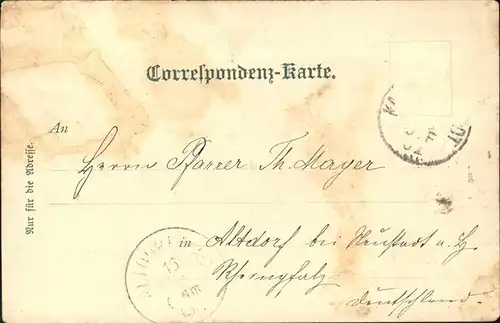 Correspondenz-Karte.
An
Herrn Pfarrer Th. Mayer
in Altdorf bei Neustadt a. H.
Rheinpfalz
Deutschland.
Nur für die Adresse.
15